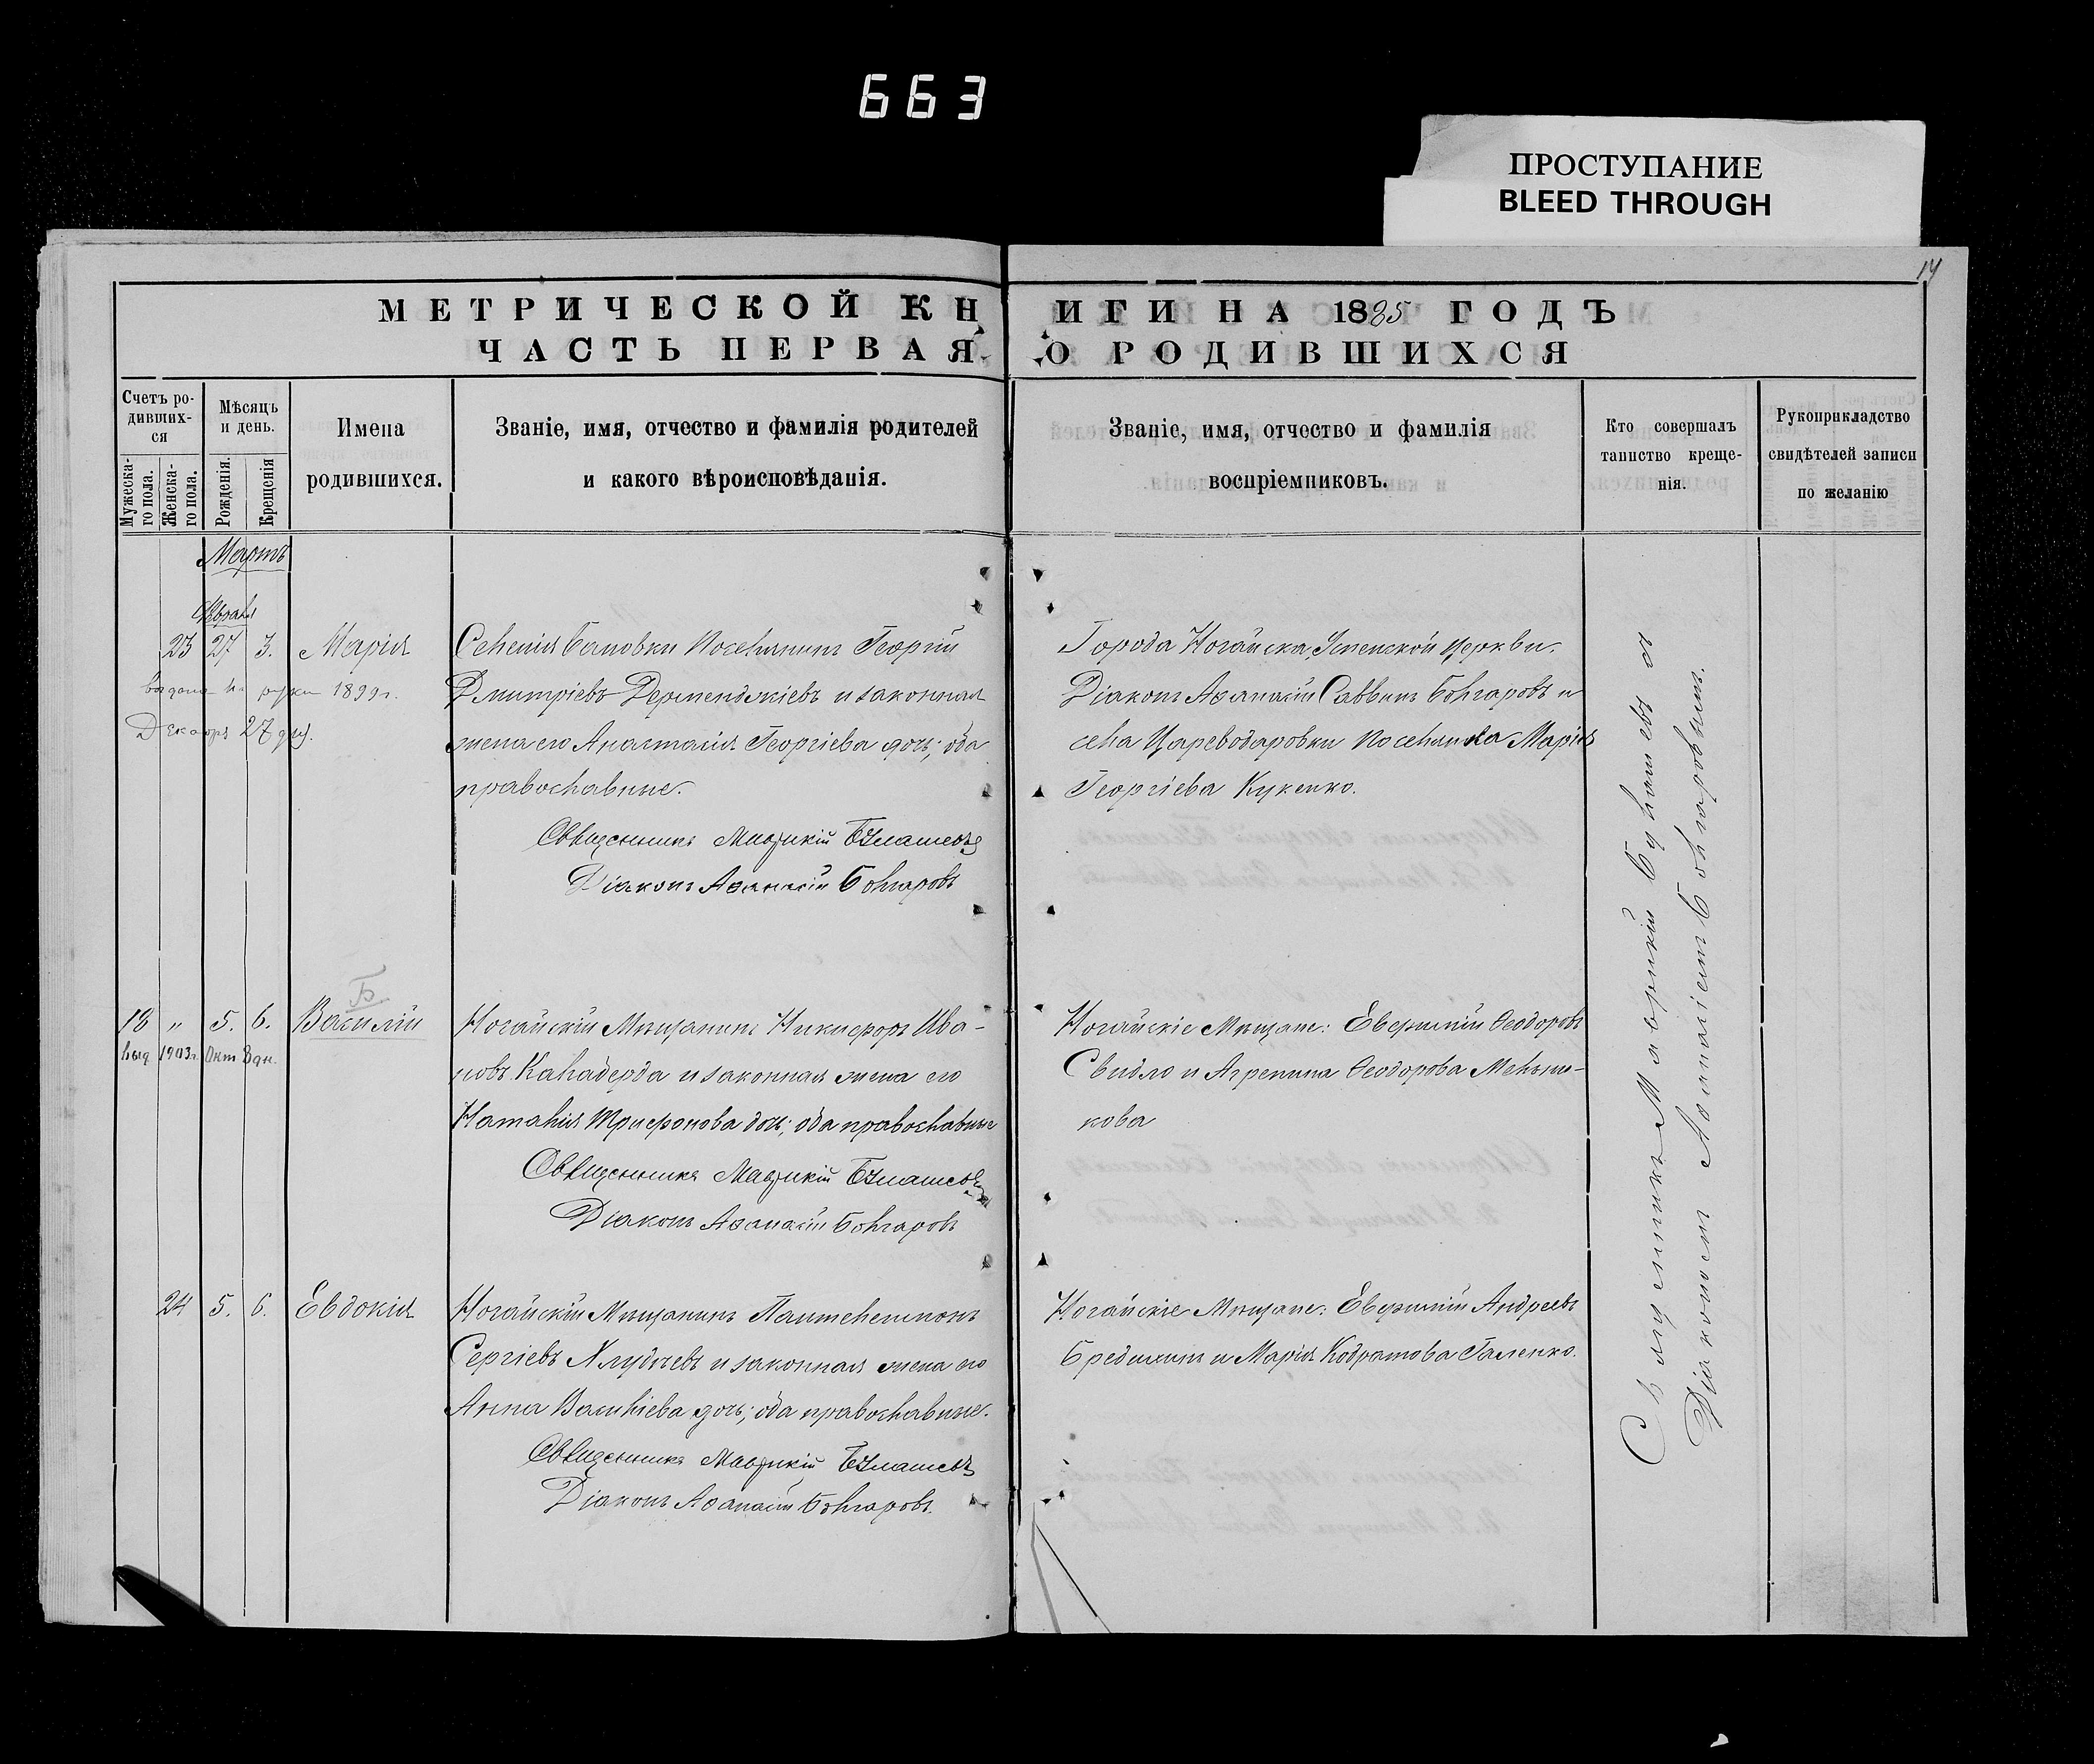 663
ПРОСТУПАНИЕ
BLEED THROUGH
14
МЕТРИЧЕСКОЙ КНИГИ НА 1885 ГОДЪ
ЧАСТЬ ПЕРВАЯ О РОДИВШИХСЯ
Счетъ ро-
дивших-
ся
Мужеска-
го пола.
Женска-
го пола.
Мѣсяцъ
и день.
Рожденія.
Крещенія
Имена
родившихся.
Званіе, имя, отчество и фамилія родителей
и какого вѣроисповѣданія.
Званіе, имя, отчество и фамилія
воспріемниковъ.
Кто совершалъ
таинство креще-
нія.
Рукоприкладство
свидѣтелей записи
по желанію
Мартъ
Февраля
23 27 3. Марія
выдана на руки 1899 г.
Декабря 27 дня.
Селенія Бановки Поселянинъ Георгій
Дмитріевъ Дерменджіевъ и законная
жена его Анастасія Георгіева дочь; оба
православные.
Священникъ Маврикій
Діаконъ Аѳанасій Болгаровъ
Города Ногайска, Успенской Церкви.
Діаконъ Аѳанасій Саввинъ Болгаровъ и
села Цареводаровки поселянка Марія
Георгіева Кукенко.
Б
18 " 5. 6. Василій
выд 1903 г. Окт 8 дн.
Ногайскій Мѣщанинъ Никифоръ Ива-
новъ Калаберда и законная жена его
Наталія Трифонова дочь; оба православные
Священникъ Маврикій
Діаконъ Аѳанасій Болгаровъ
Ногайскіе Мѣщане: Евфимій Ѳеодоровъ
Свидло и Агрепина Ѳеодорова Меньши-
кова
24 5. 6. Евдокія
Ногайскій Мѣщанинъ Пантелеимонъ
Сергіевъ и законная жена его
Анна Василіева дочь; оба православные.
Священникъ Маврикій
Діаконъ Аѳанасій Болгаровъ.
Ногайскіе Мѣщане: Евфимій Андреевъ
Бредихинъ и Марія Кодратова Галенко.
Священникъ Маврикій съ
Діакономъ Аѳанасіемъ Болгаровымъ.